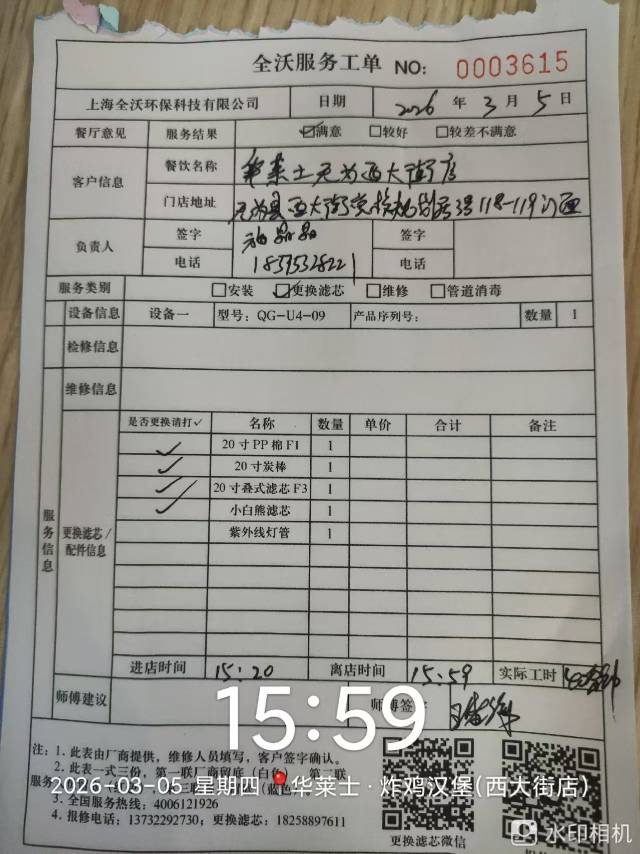 全沃服务工单 NO: 0003615
上海全沃环保科技有限公司 日期 2026 年 3 月 5 日
餐厅意见 服务结果 ☑满意 □较好 □较差不满意
客户信息 餐饮名称 华莱士无为西大街店
门店地址 无为县西大街 118-119门面
负责人 签字 签字
电话 18395328221 电话
服务类别 □安装 ☑更换滤芯 □维修 □管道消毒
设备信息 设备一 型号: QG-U4-09 产品序列号: 数量 1
检修信息
维修信息
服务信息
更换滤芯/配件信息
是否更换请打✓ 名称 数量 单价 合计 备注
✓ 20寸PP棉F1 1
✓ 20寸炭棒 1
✓ 20寸叠式滤芯F3 1
✓ 小白熊滤芯 1
紫外线灯管 1
进店时间 15:20 离店时间 15:59 实际工时
师傅建议 师傅签字
15:59
注: 1. 此表由厂商提供, 维修人员填写, 客户签字确认。
2. 此表一式三份, 第一联厂商留底 (白色) 第二联
服务 (蓝色
2026-03-05 星期四 华莱士·炸鸡汉堡(西大街店)
3. 全国服务热线: 4006121926
4. 报修电话: 13732292730; 更换滤芯: 18258897611
更换滤芯微信
水印相机